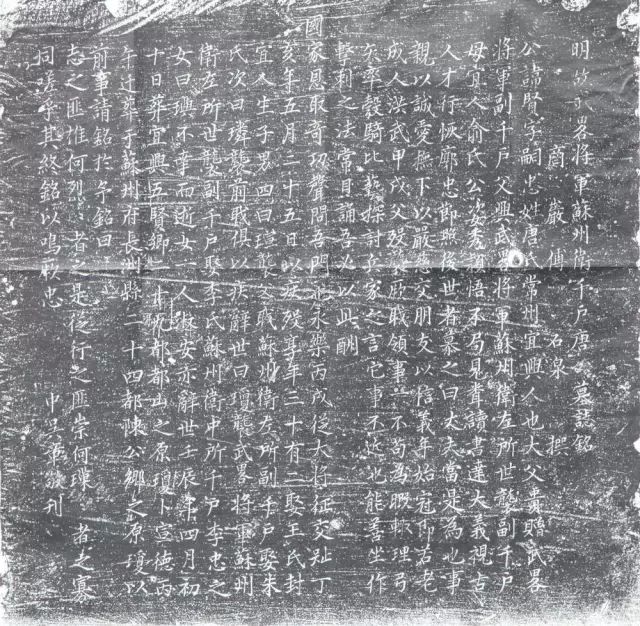 明故武畧將軍蘇州衛千户唐公墓誌銘
商巖傅 石泉 撰
公諱賢字嗣忠姓唐氏常州宜興人也大父貴贈武畧
將軍副千户父興武畧將軍蘇州衛左所世襲副千户
母宜人俞氏公姿秀穎悟不局見聳讀書達大義視古
人才行恢廓忠節照後世者慕之曰大夫當是為也事
親以誠愛撫下以嚴慈交朋友以信義年始冠即若老
成人洪武甲戌父歿襲厥職領事不苟為暇輒理弓
矢率轂騎比藝探討兵家之言它事不近也能善坐作
擊刺之法常自誦吾必以此酬
國
家恩取奇功聲聞吾門也永樂丙戌從大將征交趾丁
亥年五月二十五日以疾歿享年三十有二娶王氏封
宜人生子男四曰瑄襲公職蘇州衛左所副千户娶朱
氏次曰璘襲前職俱以疾辭世曰瓊襲武畧將軍蘇州
衛左所世襲副千户娶李氏蘇州衛中所千户李忠之
女曰璵不幸而逝女一人淑安亦辭世壬辰年四月初
十日葬宜興五賢鄉二都山之原瓊卜宣德丙
午迁葬于蘇州府長洲縣二十四都陳公鄉之原瓊以
前事請銘於予銘曰
志之匪推何烈者之是從行之匪崇何璞者之寡
同嗟乎其終銘以鳴厥忠
中吳 刊